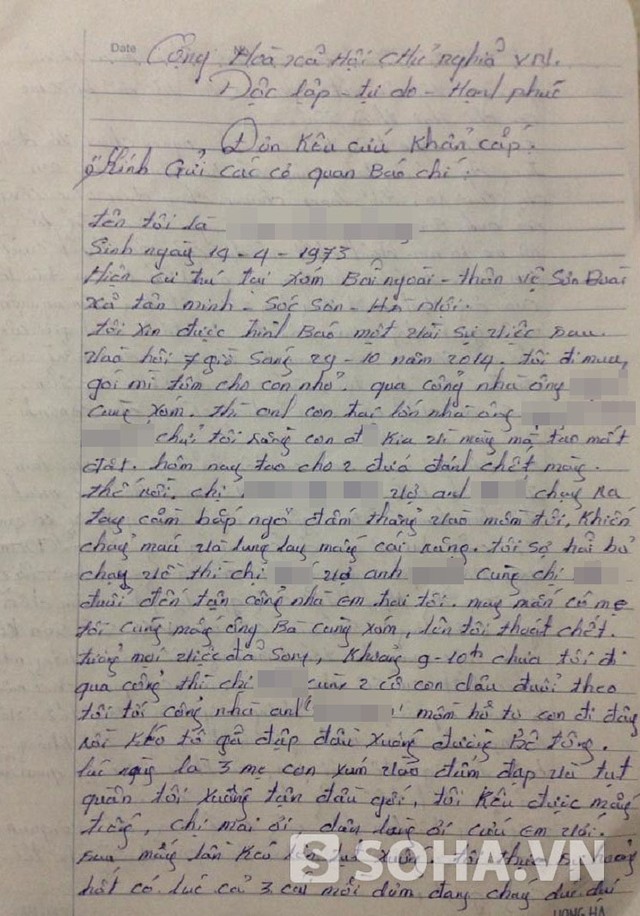 Date No.
Cộng Hoà xã Hội chủ nghĩa VN.
Độc lập - tự do - Hạnh phúc
Đơn Kêu cứu Khẩn cấp.
Kính Gửi các cơ quan Báo chí.
tên tôi là
Sinh ngày 14 - 4 - 1973
Hiện cư trú tại xóm Bãi ngoài - thôn vệ Sơn Đoài
xã tân minh - Sóc Sơn - Hà Nội.
tôi xin được trình Báo một vài sự việc sau.
vào hồi 7 giờ sáng 29 - 10 năm 2014. tôi đi mua
gói mì tôm cho con nhỏ. qua cổng nhà ông
cùng xóm. thì anh con trai lớn nhà ông
chửi tôi rằng con đ kia vì mày mà tao mất
đất. hôm nay tao cho 2 đứa đánh chết mày.
thế rồi, chị vợ anh chạy ra
tay cầm bắp ngô đấm thẳng vào mồm tôi, khiến
chảy máu và lung lay mấy cái răng. tôi sợ hãi bỏ
chạy về thì chị vợ anh cùng chị
đuổi đến tận cổng nhà em trai tôi. may mắn có mẹ
tôi cùng mấy ông Bà cùng xóm, lên tôi thoát chết.
tưởng mọi việc đã song, khoảng 9-10h trưa tôi đi
qua cổng thì chị cùng 2 cô con dâu đuổi theo
tôi tới cổng nhà anh mồm hô to con đi đây
rồi kéo tô gã đập đầu xuống đường Bê tông.
lúc này là 3 mẹ con xúm vào đấm đạp và tụt
quần tôi xuống tận đầu gối, tôi kêu được mấy
tiếng, chị mai ơi dân làng ơi cứu em với.
sau mấy lần kéo lên tụt xuống
hốt có lúc cả 3 đang chạy
SOHA.VN
HONG HÀ